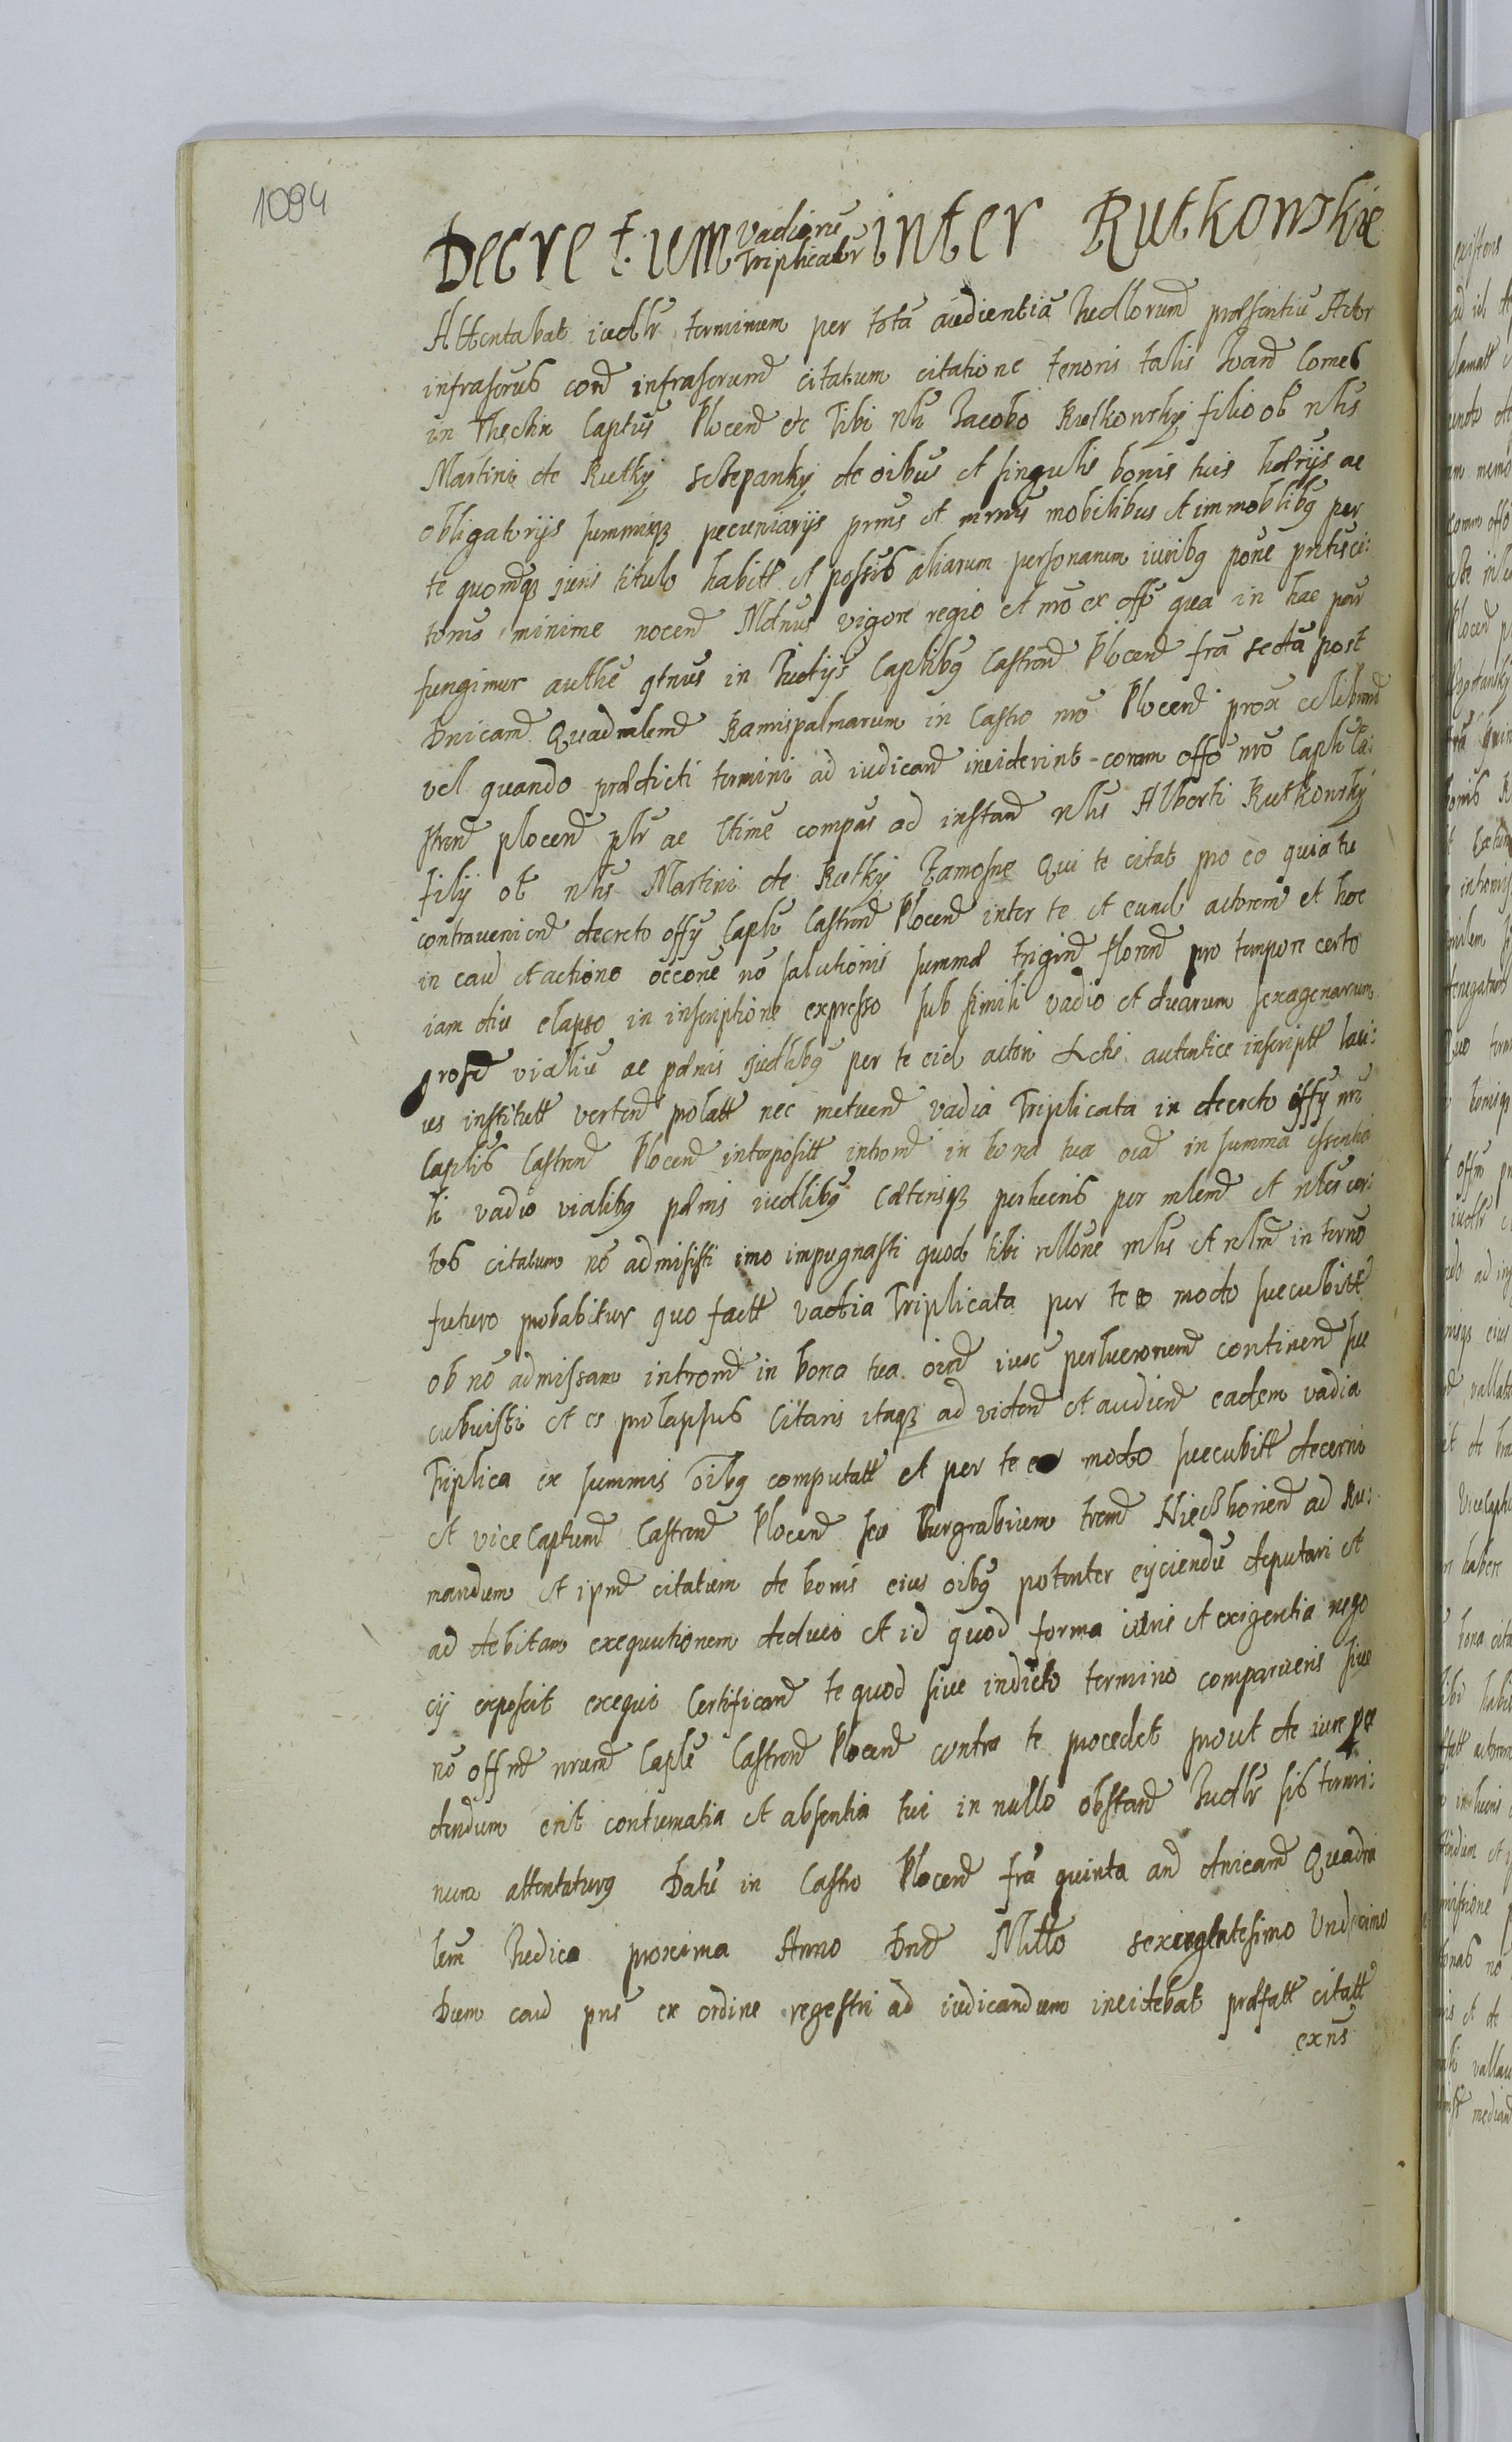 1094
Decretum Vadiorū Triplicatorū inter Rutkowskie
Attentabat iudlr terminum per totā audientiā Iudlorum praesentiū Actor
infrascrus cord infrascrumd citatum citatione tenoris talis Ioand Comes
in Thęchin Captus Plocend etc Tibi nli Iacobo Rutkowsky filio ol nlis
Martini de Rutky Sctepanky de oibus et singulis bonis tuis hdrijs ac
obligatorijs summisq pecuniarijs prnis et mrnis mobilibus et immoblibq per
te quomdq juris titulo habitt et possis aliarum personarum iuribq pone pntisci:
toris minime nocend Mdnus vigore regio et nrō ex offo qua in hac par
fungimur authē qtnus in Iudijs Caplibq Castrend Plocend frā sectā post
Dnicam Quadralemd Ramispalmarum in Castro nrō Plocend prox celebrand
vel quando praedicti termini ad iudicand inciderint coram offo nrō Capli Ca:
strend plocend plr ac ltime compas ad instand nlis Alberti Rutkowsky
filij ol nlis Martini de Rutky Zamosne Qui te citat pro eo quia tu
contraveniend decreto offy Caplu Castrend Plocend inter te et eund actorem et hoc
in caud et actione occone nō solutionis summae trigind florend pro tempore certo
iam diu elapso in inscriptione expresso sub simili vadio et duarum sexagenarum
grosd vialiū ac paenis judlibq per te eid actori autentice inscriptt
us institutt vertend prolatt nec metuend vadia Triplicata in decreto offy nri
Caplis Castrend Plocend interpositt intromd in bona tua oia in summa
li vadio vialibq paenis iudlibq caeterisq perlucris per mlemd et nles cer:
tos citatum nō admisisti imo impugnasti quod tibi rllone mlis et nlm in termō
futuro probabitur quo factt vadia Triplicata per te eo modo succubitt
ob nō admissam intromd in bona tua oia perlucrorumd continend suc
cubuisti et es prolapsus Citaris itaq ad videnđ et audiend eadem vadia
Triplica ex summis oibq computatt et per te eo modo succubitt decerni
et vice Captumd Castrend Plocend seu Burgrabium tremd Nieckhoriend ad Ru:
mandum et ipmd citatum de bonis eius oibq potenter eijciendū deputari et
ad debitam exequutionem deduci et id quod forma iuris et exigentia nego
cij exposcit exequi Certificand te quod sive indicto termino comparueris sive
nō offmd nrumd Caplē Castrend Plocend contra te procedet prout de iure pce
dendum erit contumatia et absentia tui in nullo obstand Iudlr sis termi:
num attentaturq Datū in Castro Plocend frā quinta and dnicamd Quadra
lem Iudica proxima Anno Dnd Mitto sexcentesimo Undecimo
Dum caud pns ex ordine regestri ad iudicandum incidebat praefatt citatt
exns